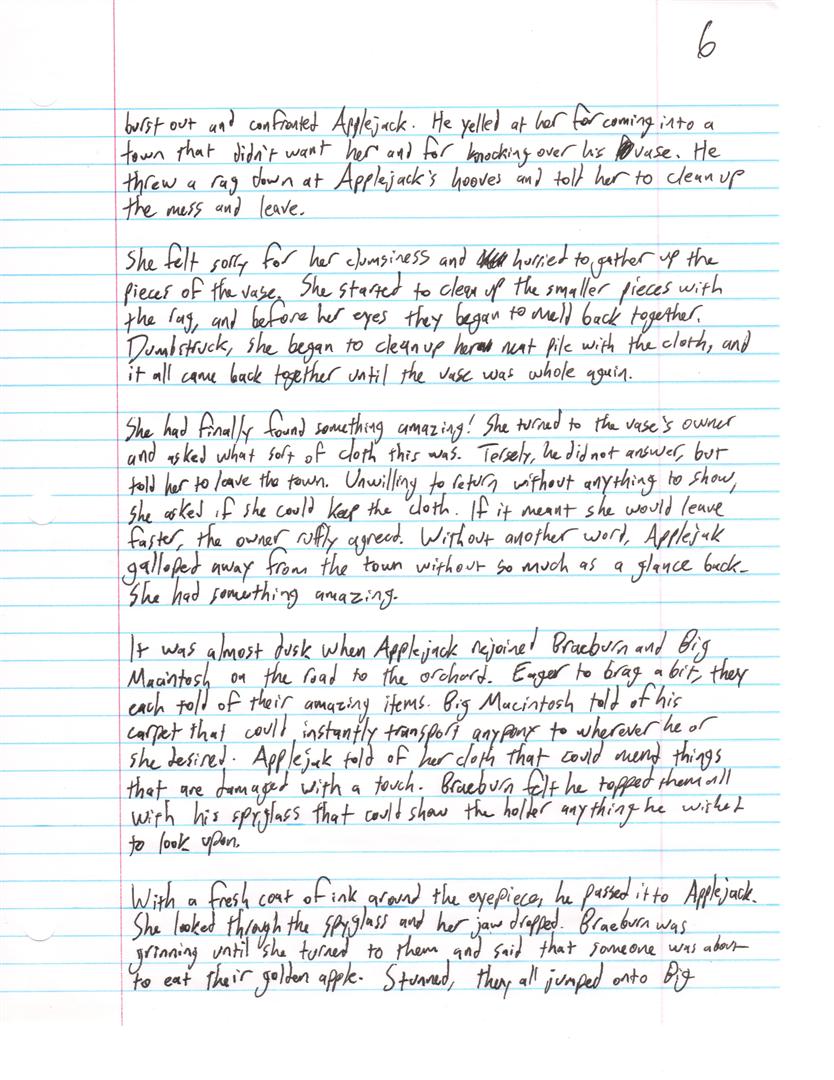 6
burst out and confronted Applejack. He yelled at her for coming into a
town that didn't want her and for knocking over his vase. He
threw a rag down at Applejack's hooves and told her to clean up
the mess and leave.
She felt sorry for her clumsiness and hurried to gather up the
pieces of the vase. She started to clean up the smaller pieces with
the rag, and before her eyes they began to meld back together.
Dumbstruck, she began to clean up her neat pile with the cloth, and
it all came back together until the vase was whole again.
She had finally found something amazing! She turned to the vase's owner
and asked what sort of cloth this was. Tersely, he did not answer, but
told her to leave the town. Unwilling to return without anything to show,
she asked if she could keep the cloth. If it meant she would leave
faster, the owner ruffly agreed. Without another word, Applejak
galloped away from the town without so much as a glance back.
She had something amazing.
It was almost dusk when Applejack rejoined Braeburn and Big
Macintosh on the road to the orchard. Eager to brag a bit, they
each told of their amazing items. Big Macintosh told of his
carpet that could instantly transport anypony to wherever he or
she desired. Applejak told of her cloth that could mend things
that are damaged with a touch. Braeburn felt he topped them all
with his spyglass that could show the holder anything he wished
to look upon.
With a fresh coat of ink around the eyepiece, he passed it to Applejack.
She looked through the spyglass and her jaw dropped. Braeburn was
grinning until she turned to them and said that someone was about
to eat their golden apple. Stunned, they all jumped onto Big